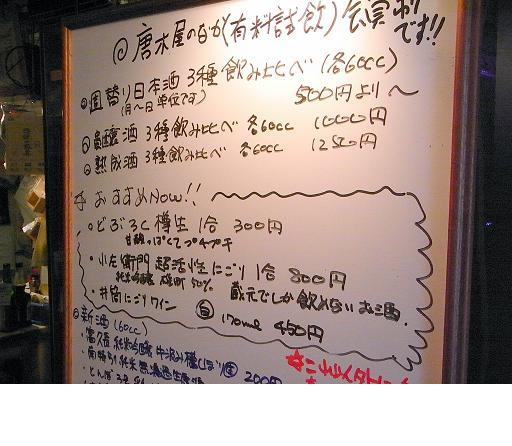 ◎唐木屋のなか(有料試飲)会実現です!!
◎週替り日本酒 3種飲み比べ(各60cc)
(月〜日 単位です) 500円より〜
◎貴醸酒 3種飲み比べ 各60cc 1000円
◎熟成酒 3種飲み比べ 各60cc 1250円
おすすめNow!!
◦どぶろく樽生 1合 300円
甘酸っぱくてプチプチ
・小左衛門 超活性にごり 1合 800円
純米吟醸 雄町50% 蔵元でしか飲めないお酒.
・井筒にごりワイン 白 170ml 450円
◎新酒(60cc)
・富久長 純米吟醸 中汲み槽しぼり 200円
純米 無濾過生原酒
・とんぼ